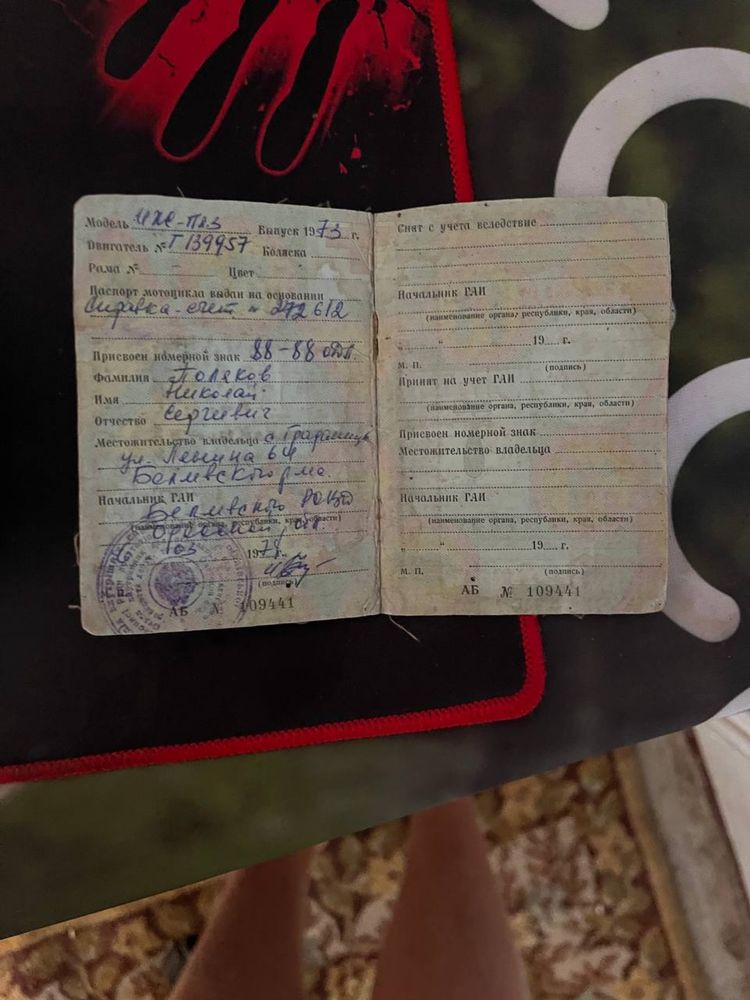 Модель ИЖ-П3 Выпуск 1973 г.
Двигатель № Г139957 Коляска
Рама № - Цвет
Паспорт мотоцикла выдан на основании
Справка-счет № 272612
Присвоен номерной знак 88-88
Фамилия Поляков
Имя Николай
Отчество Сергиевич
Местожительство владельца с.
ул. Ленина 64
Начальник ГАИ
(наименование органа, республики, края, области)
03 1978 г.
(подпись)
АБ № 109441
Снят с учета вследствие
Начальник ГАИ
(наименование органа, республики, края, области)
„ “ 19 г.
М. П. (подпись)
Принят на учет ГАИ
(наименование органа, республики, края, области)
Присвоен номерной знак
Местожительство владельца
Начальник ГАИ
(наименование органа, республики, края, области)
„ “ 19 г.
М. П. (подпись)
АБ № 109441